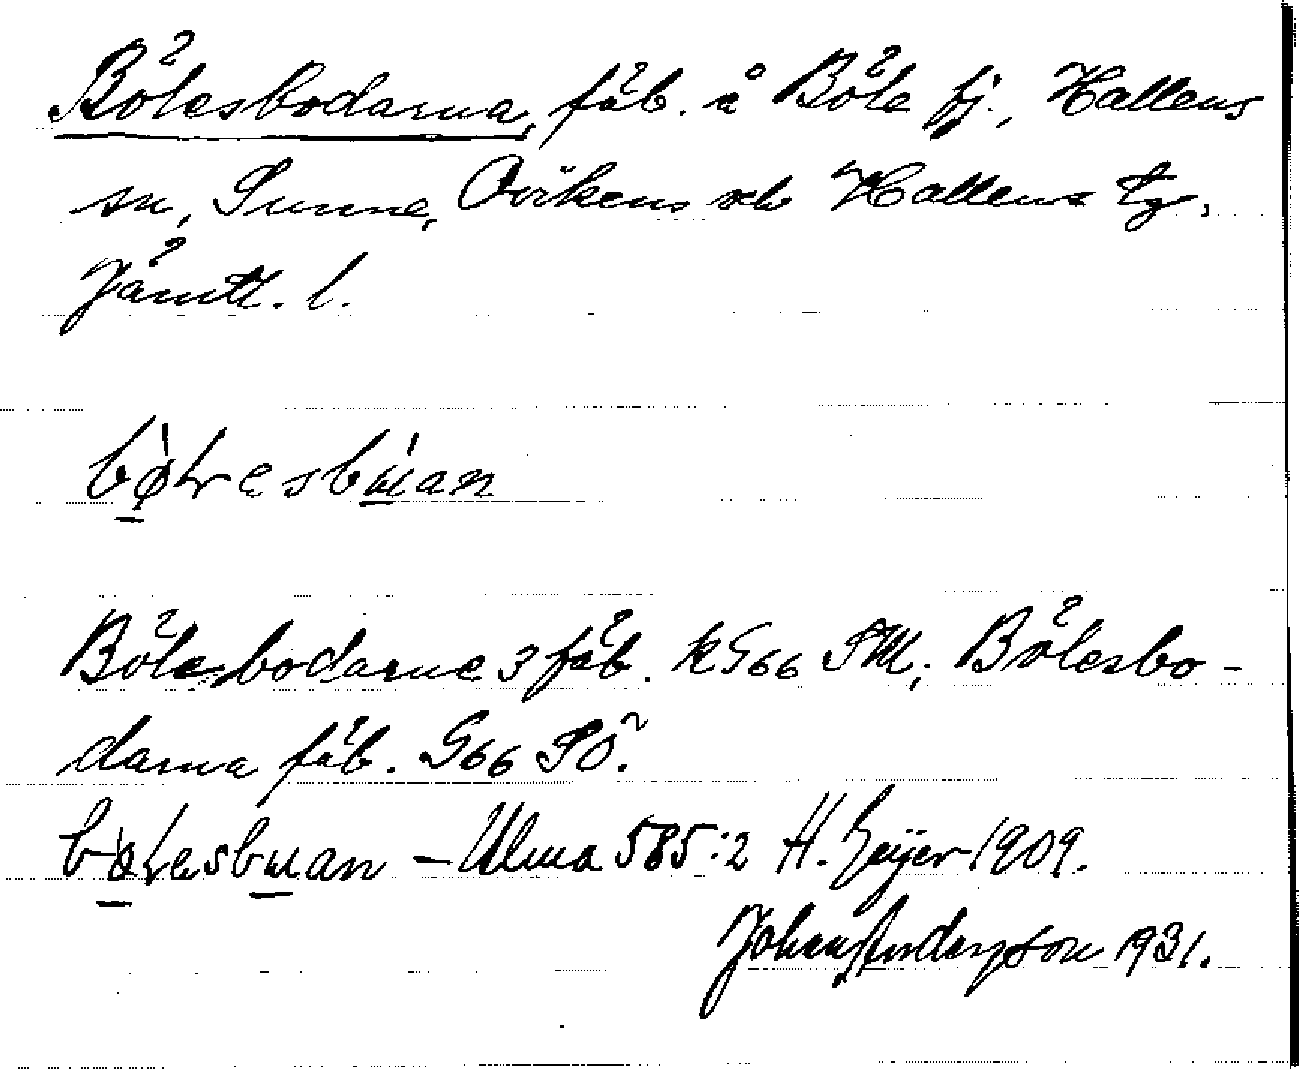 Bölesbodarna, fäb. å Böle fj., Hallens
sn, Sunne, Ovikens och Hallens tg,
Jämtl. l.
bø̀ɫesbɯ́an
Bölesbodarne 3 fäb. k G66 SM; Bölesbo-
darna fäb. G66 SÖ.
bøɫesbɯan – Ulma 585:2 H. Geijer 1909.
Johan Anderson 1931.